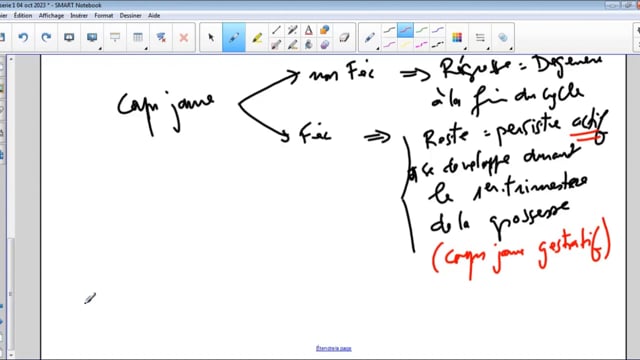 serie 1 04 oct 2023 * - SMART Notebook
Insérer Format Affichage Outils Compléments Aide
non Féc ⇒ Régresse = Dégénère
à la fin du cycle
Corps jaune
Féc ⇒ Reste = persiste actif
et se développe durant
le 1er trimestre
de la grossesse
(corps jaune gestatif)
Étendre la page